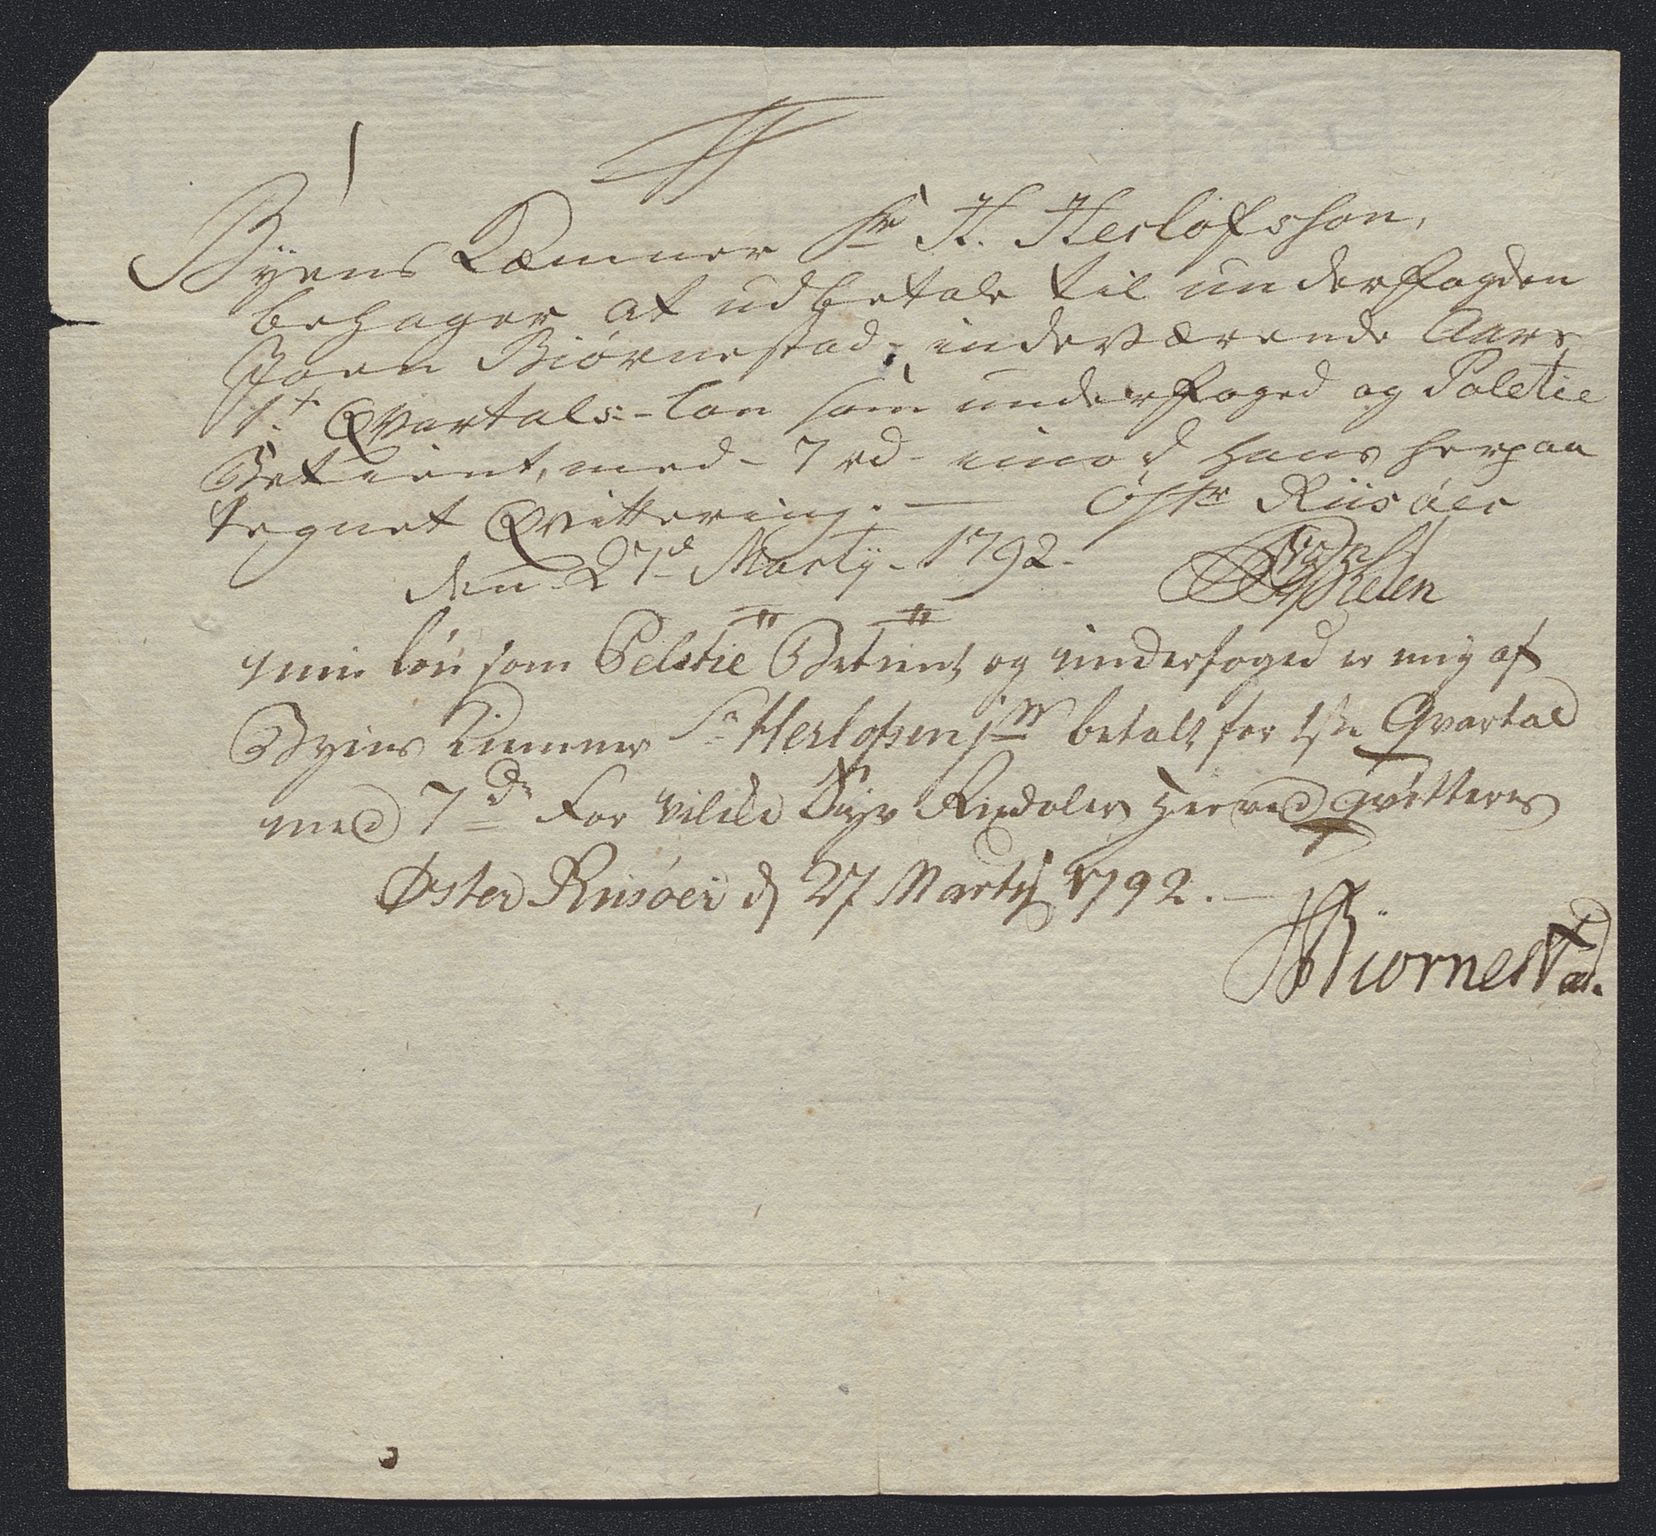 1
Byens Kæmner Hr H. Herlofsson,
behager at udbetale til underfogden
Joen Biørnestad, indeværende Aars
1t Qvartals-Løn som underfoged og Poletie
Betient, med - 7 rd - imod hans herpaa
tegnet Qvittering. — Østr Riisøer
den 27d Martij - 1792.
min løn som Poletie Betient og underfoged er mig af
Byens Kemner Sr Herlofsen jr betalt for 1ste Qvartal
med 7 dr for vilke Syv Rixdaler herved qvitteres
Øster Riisøer d 27 Martij 1792. —
Biornestad.